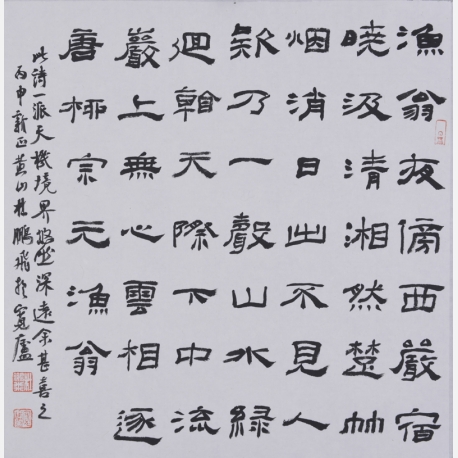 漁翁夜傍西巖宿
曉汲清湘然楚竹
烟消日出不見人
欸乃一聲山水綠
迴看天際下中流
巖上無心雲相逐
唐柳宗元漁翁
此詩一派天機境界悠然深遠余甚喜之
丙申新正黄山桂鵬飛於寬廬